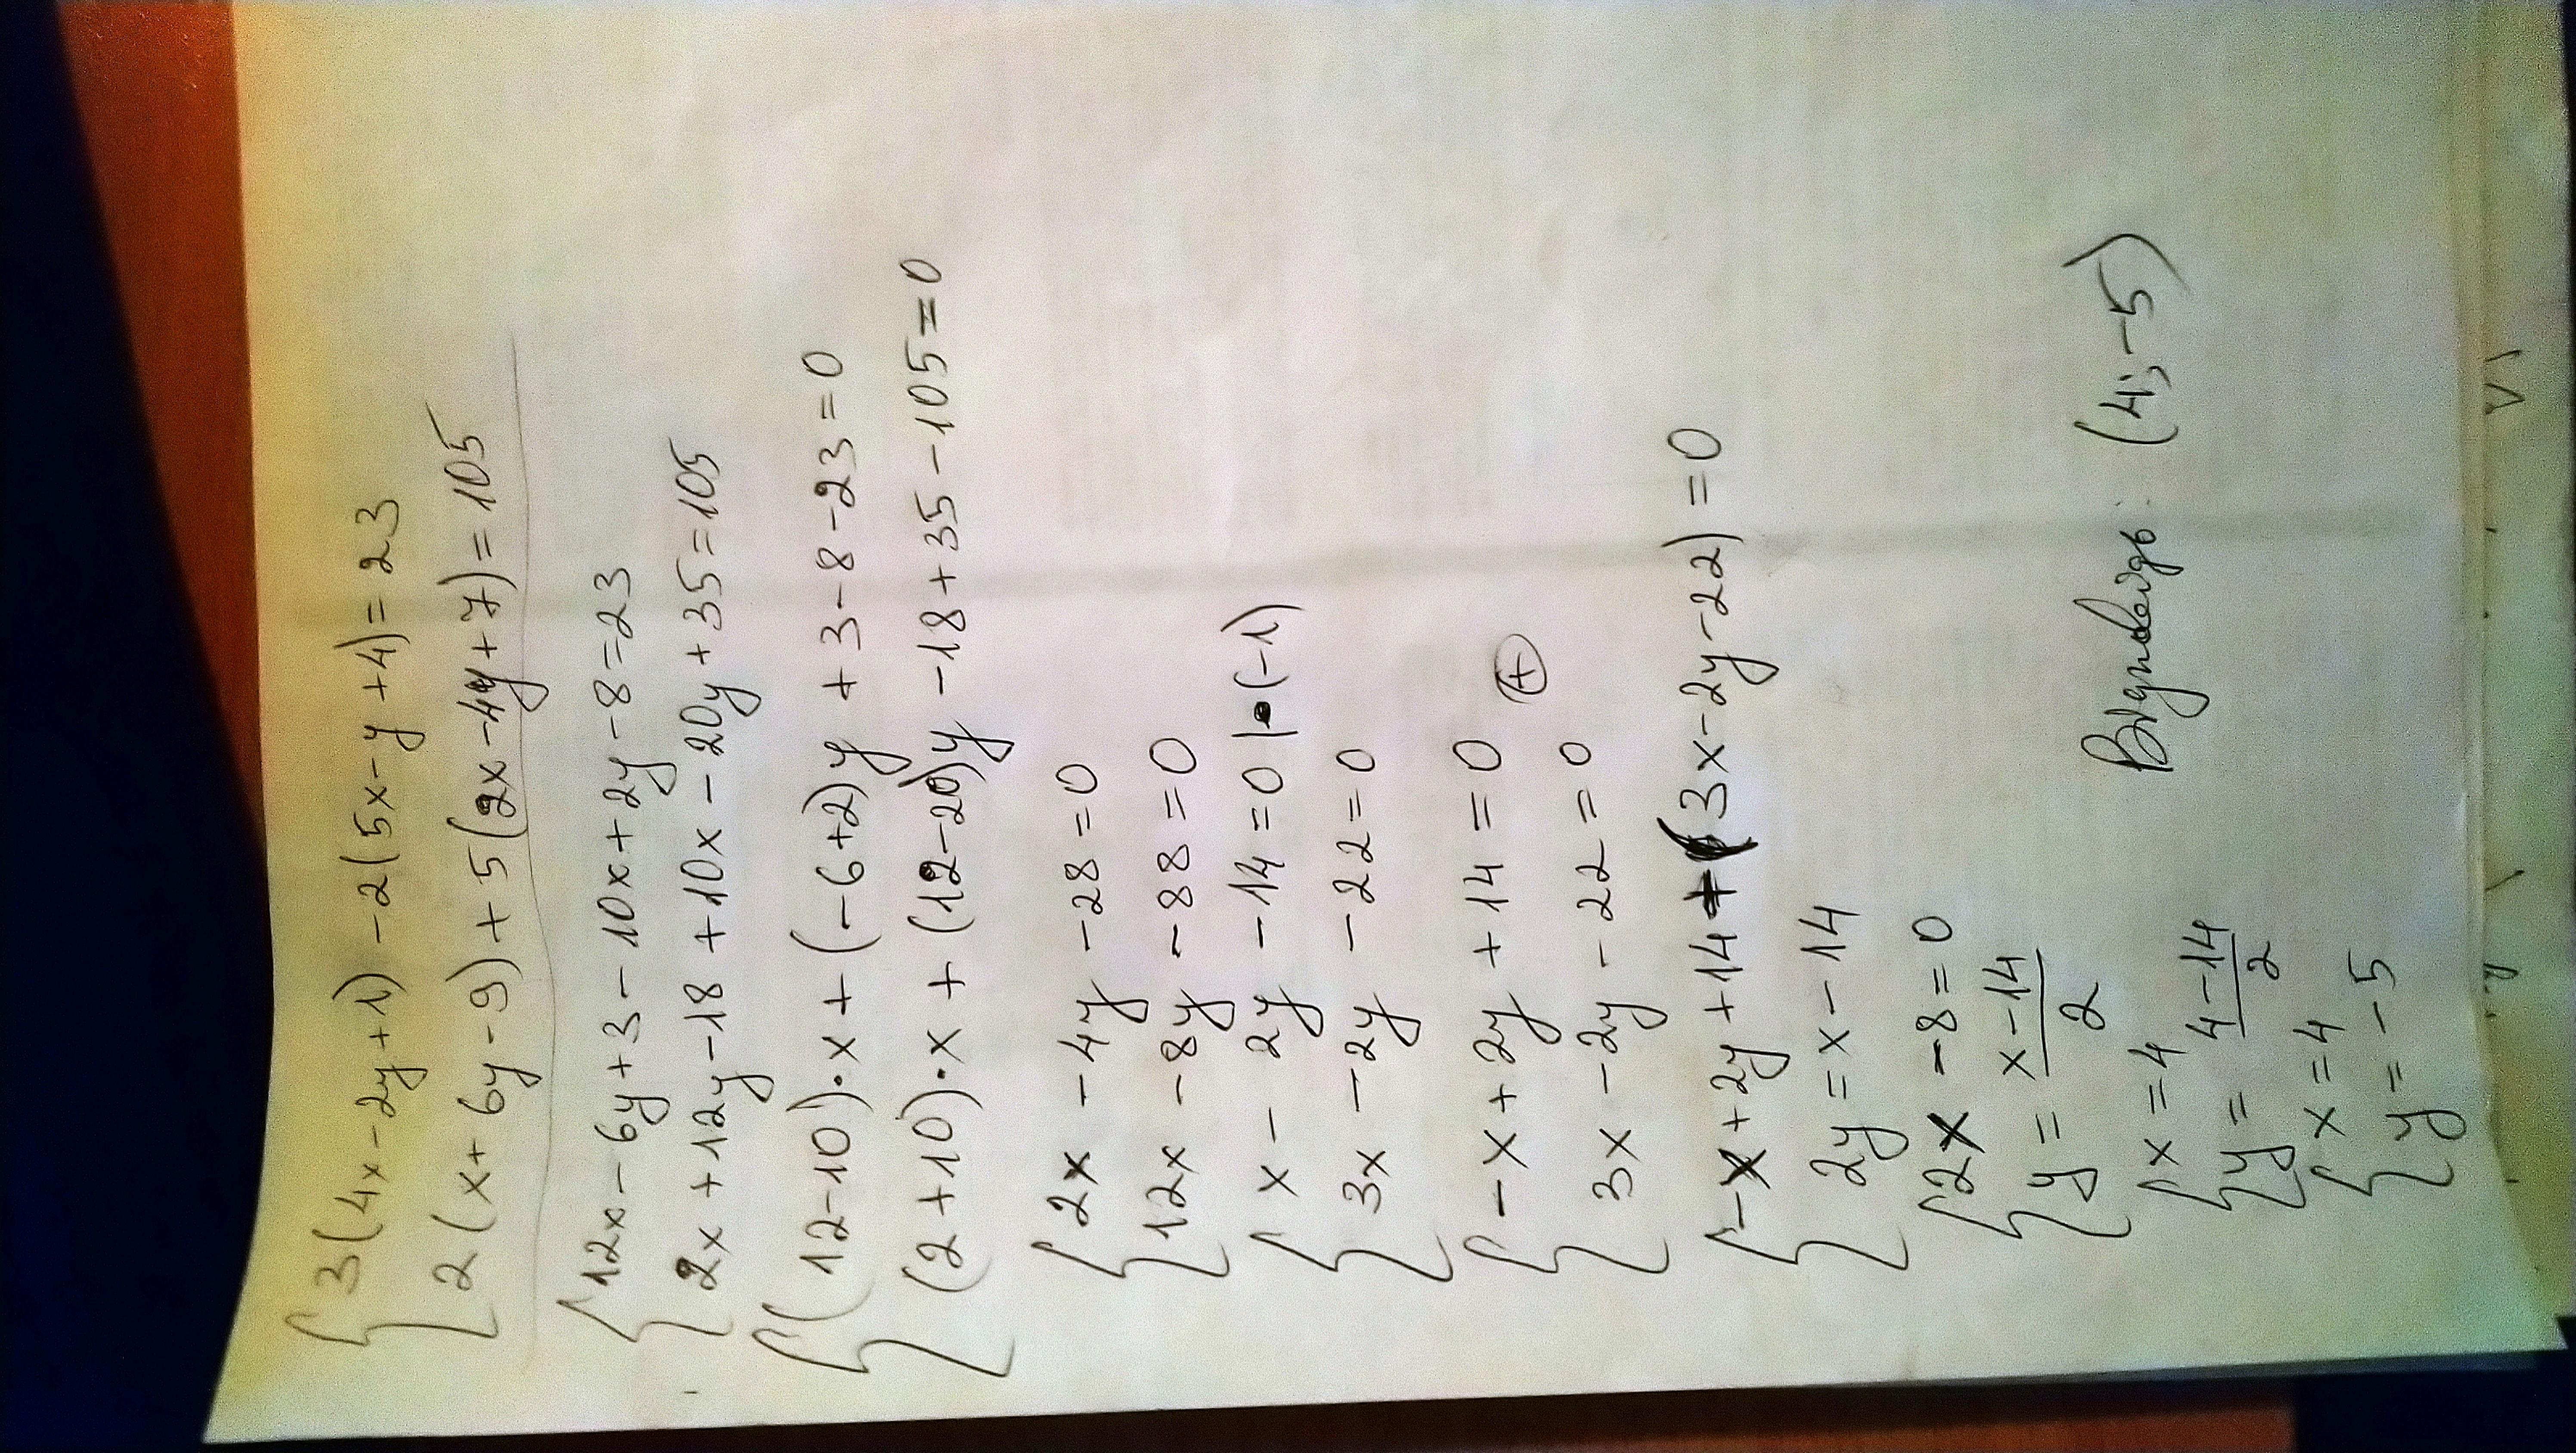 3(4x-2y+1)-2(5x-y+4)=23
2(x+6y-9)+5(2x-4y+7)=105
12x-6y+3-10x+2y-8=23
2x+12y-18+10x-20y+35=105
(12-10)·x+(-6+2)y+3-8-23=0
(2+10)·x+(12-20)y-18+35-105=0
2x-4y-28=0
12x-8y-88=0
x-2y-14=0|·(-1)
3x-2y-22=0
-x+2y+14=0 (+)
3x-2y-22=0
-x+2y+14+(3x-2y-22)=0
2y=x-14
2x-8=0
y=\frac{x-14}{2}
x=4
y=\frac{4-14}{2}
x=4
y=-5
Відповідь: (4;-5)